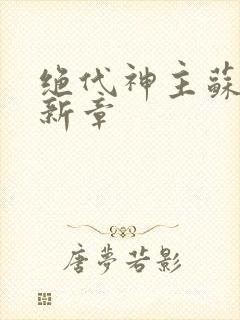 绝代神主蘇
新章
唐夢若影